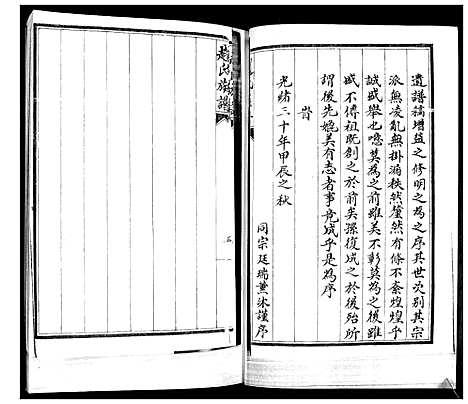 遺譜藉增益之修明之為之序其世次別其宗
派無凌亂無掛漏秩然釐然有條不紊煌煌乎
誠盛舉也噫莫為之前雖美不彰莫為之後雖
盛不傳祖既創之於前矣孫復成之於後殆所
謂後先媲美有志者事竟成乎是為序
旹
光緒三十年甲辰之秋
同宗廷瑞薰沐謹序
趙氏族譜
五